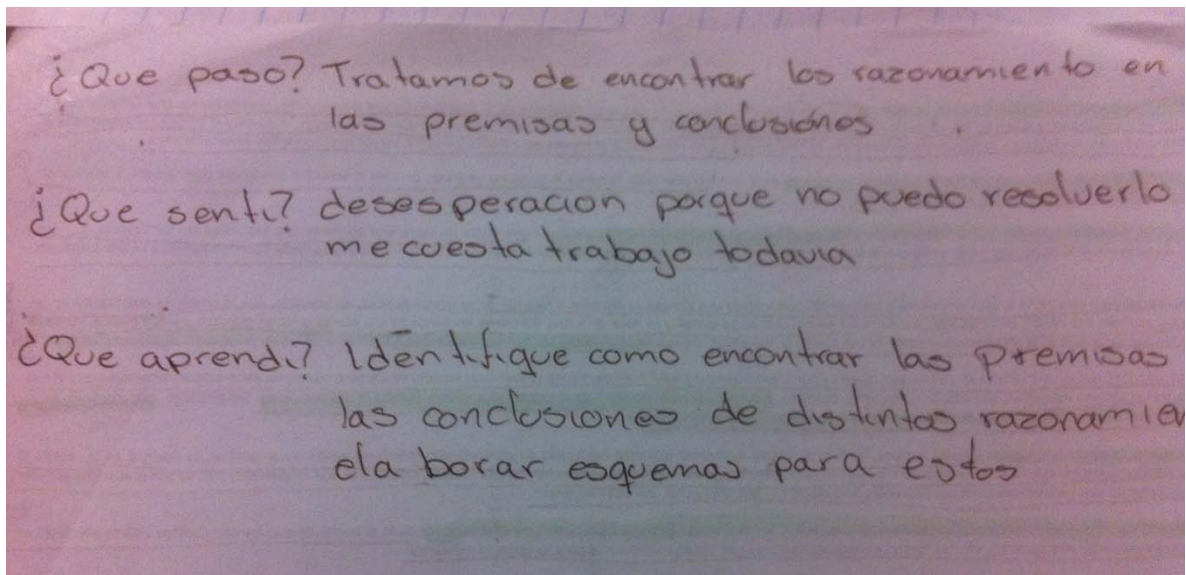 ¿Que paso? Tratamos de encontrar los razonamiento en
las premisas y conclusiones
¿Que senti? desesperacion porque no puedo resolverlo
me cuesta trabajo todavia
¿Que aprendi? Identifique como encontrar las premisas
las conclusiones de distintos razonamien
elaborar esquemas para estos